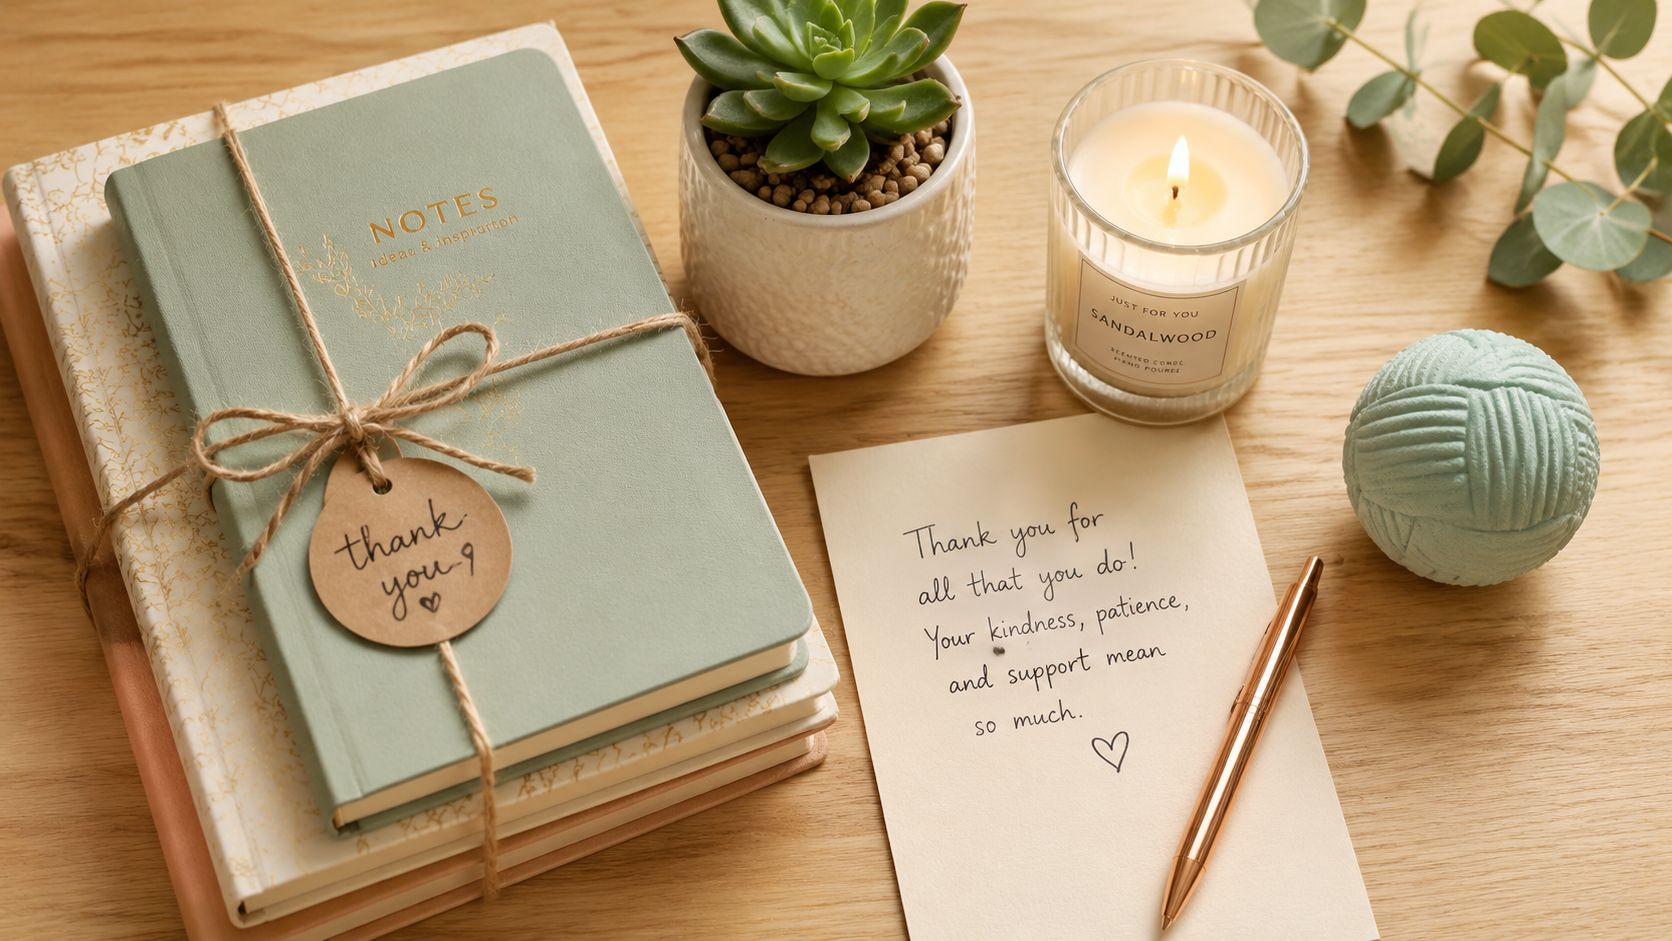 NOTES
Ideas & Inspiration
thank
you
JUST FOR YOU
SANDALWOOD
Thank you for
all that you do!
Your kindness, patience,
and support mean
so much.